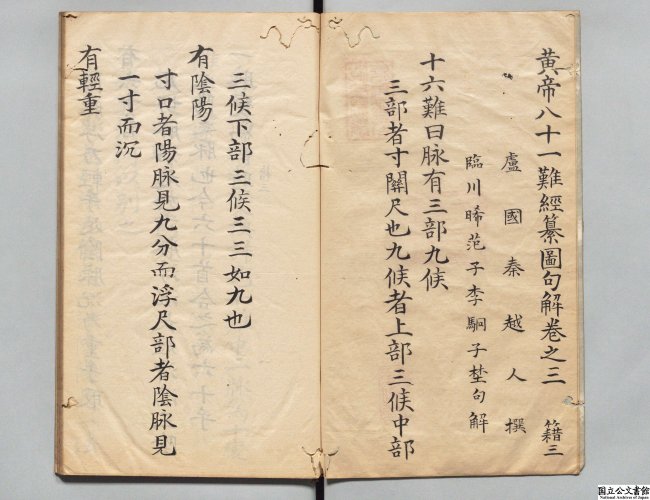 黄帝八十一難經纂圖句解卷之三　籍三
盧國秦越人撰
臨川晞范子李駉子埜句解
十六難曰脉有三部九候
三部者寸關尺也九候者上部三候中部
三候下部三候三三如九也
有陰陽
寸口者陽脉見九分而浮尺部者陰脉見
一寸而沉
有輕重
国立公文書館
National Archives of Japan